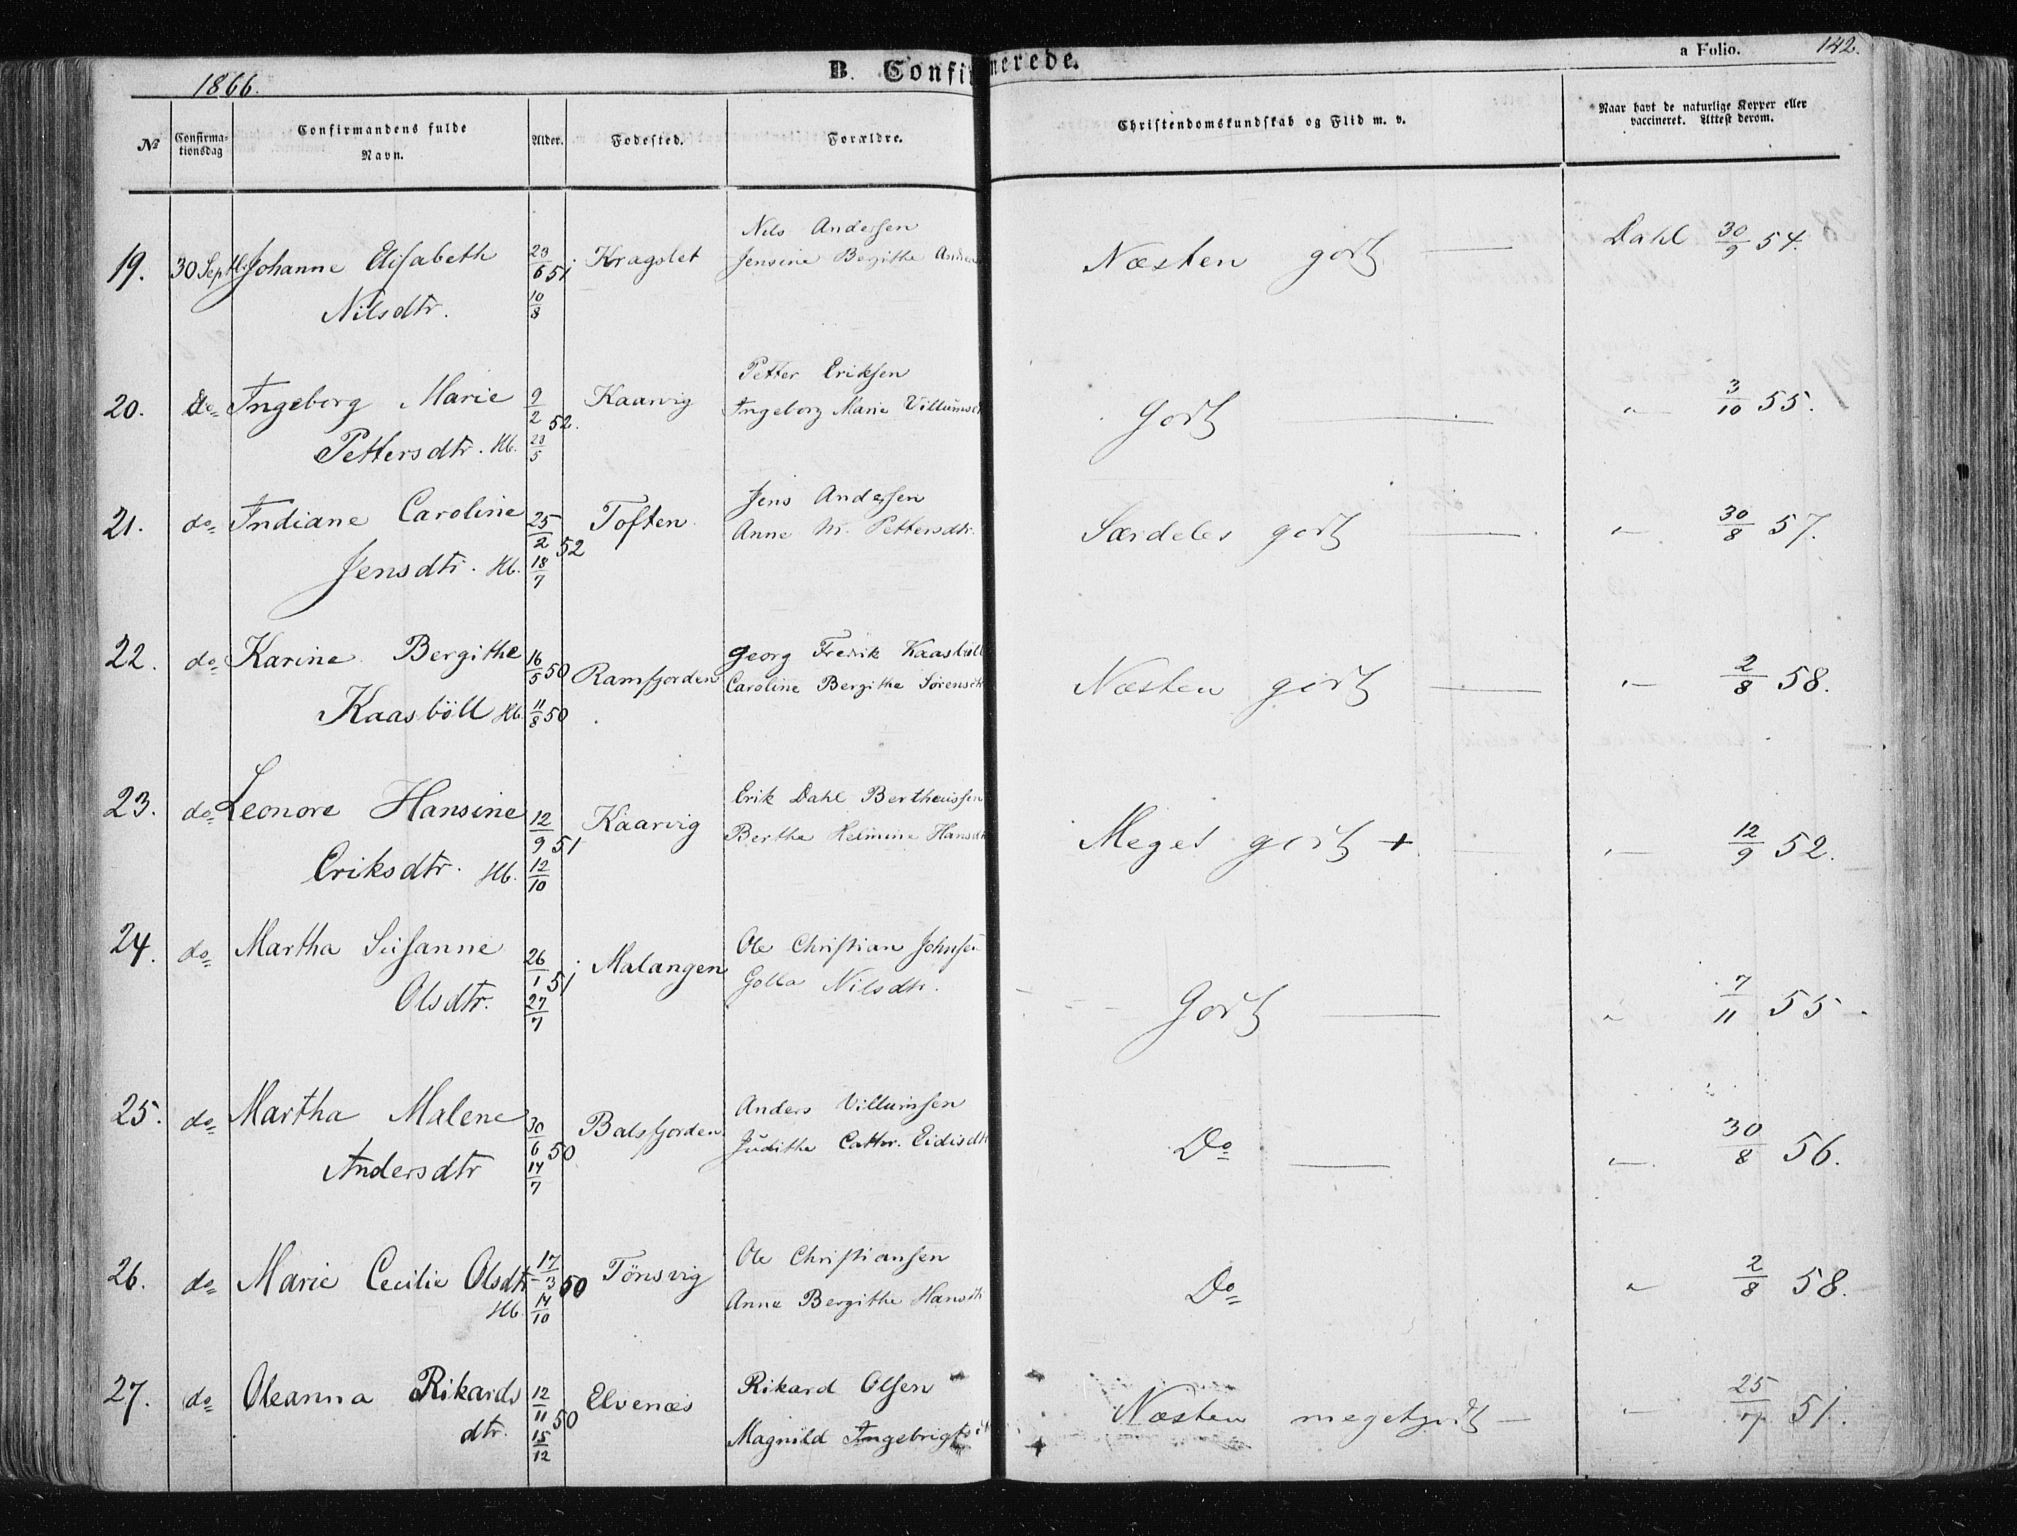 1866.
B. Confirmerede.
a Folio.
142.
№
Confirma-
tionsdag
Confirmandens fulde
Navn.
Alder.
Fødested.
Forældre.
Christendomskundskab og Flid m. v.
Naar havt de naturlige Kopper eller
vaccineret. Attest derom.
19. 30 Septb. Johanne Elisabeth 23/6 51 Kragslet Nils Andersen Næsten godt — Dahl 30/9 54.
Nilsdtr. 10/8 Jensine Bergithe
20. do Ingeborg Marie 9/2 52. Kaarvig Petter Eriksen Godt — " 3/10 55.
Pettersdtr. Hb. 23/5 Ingeborg Marie
21. do Indiane Caroline 25/2 52 Toften Jens Andersen Særdeles godt — " 30/8 57.
Jensdtr. Hb. 18/7 Anne M. Pettersdtr.
22. do Karine Bergithe 16/5 50 Ramfjorden Georg Fredrik Kaasböll Næsten godt — " 2/8 58.
Kaasböll Hb. 11/8 50 Caroline Bergithe
23. do Leonore Hansine 12/9 51 Kaarvig Erik Dahl Bertheussen Meget godt + — " 12/9 52.
Eriksdtr. Hb. 12/10 Berthe Helmine Hansdtr
24. do Martha Susanne 26/1 51 Malangen Ole Christian Johnsen Godt — " 7/11 55.
Olsdtr. 27/7 Golla Nilsdtr.
25. do Martha Malene 30/6 50 Balsfjorden Anders Villumsen Do — " 30/8 56.
Andersdtr 14/7 Judithe Cathr. Eidisdtr
26. do Marie Cecilie Olsdtr 17/3 50 Tönsvig Ole Christiansen Do " 2/8 58.
Hb. 14/10 Anne Bergithe Hansdtr
27. do Oleanna Rikards 12/11 50 Elvenæs Rikard Olsen Næsten megetgodt — " 25/7 51.
dtr. 15/12 Magnild